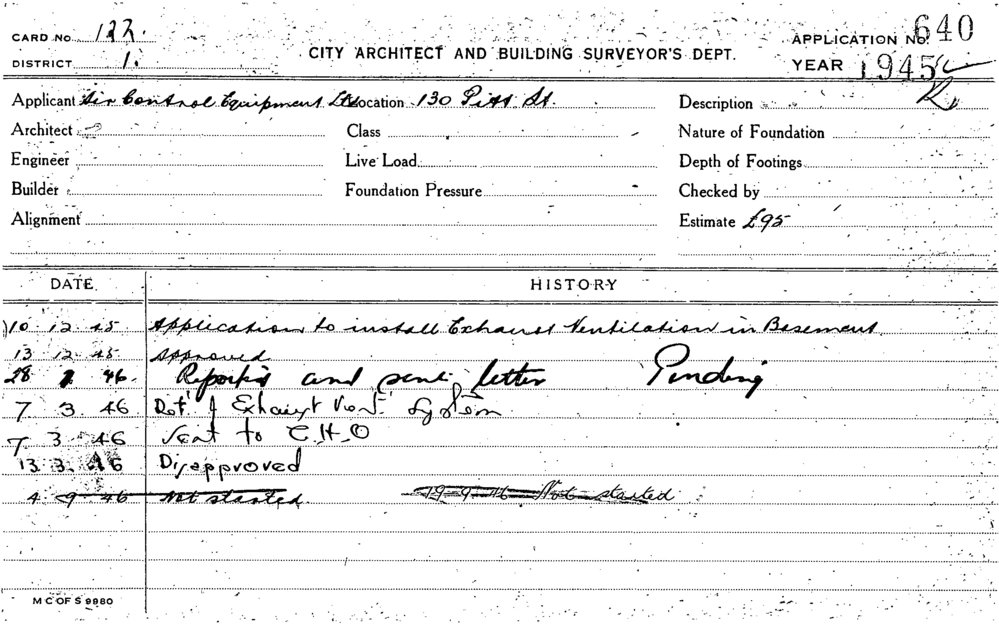 CARD No. 122.
DISTRICT 1.
CITY ARCHITECT AND BUILDING SURVEYOR'S DEPT.
APPLICATION No. 640
YEAR 1945
Applicant Air Control Equipment Ltd Location 130 Pitt St. Description R
Architect Class Nature of Foundation
Engineer Live Load Depth of Footings
Builder Foundation Pressure Checked by
Alignment Estimate £95
DATE. HISTORY
10 12 45 Application to install Exhaust Ventilation in Basement.
13 12 45 Approved
28 46. and sent letter Pending
7 3 46 Det. of Exhaust Vent. System
7 3 46 Sent to C.H.O
13 3 46 Disapproved
4 9 46 Not started. 19-9-46 Not started
M C OF S 9980